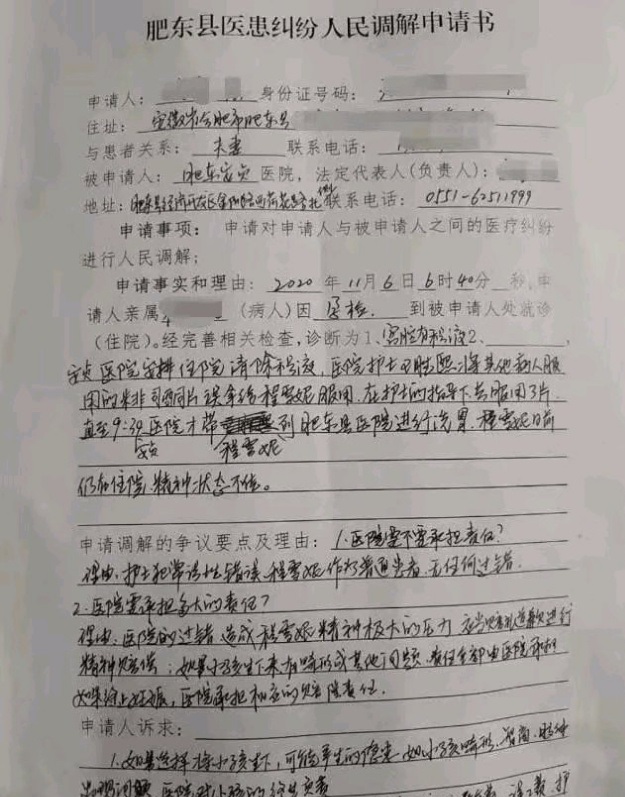 肥东县医患纠纷人民调解申请书
申请人: 身份证号码:
住址: 安徽省合肥市肥东县
与患者关系: 夫妻 联系电话:
被申请人: 肥东安贞 医院, 法定代表人(负责人):
地址: 肥东县经济开发区 联系电话: 0551-62511999
申请事项: 申请对申请人与被申请人之间的医疗纠纷
进行人民调解;
申请事实和理由: 2020 年 11月 6日 6时 40分 秒,申
请人亲属 (病人)因 孕检. 到被申请人处就诊
(住院)。经完善相关检查,诊断为1、宫腔有积液2、 ,
安贞医院安排住院清除积液,医院护士 将其他病人服
用的米非司酮片误拿给程雪妮服用.在护士的指导下共服用了3片.
直至9:30医院才带 到肥东县医院进行洗胃.程雪妮目前
安贞 程雪妮
仍在住院.精神状态不佳。
申请调解的争议要点及理由: 1.医院需不需承担责任?
理由.护士犯常识性错误.程雪妮作为普通患者.无任何过错.
2.医院需承担多大的责任?
理由.医院的过错造成程雪妮精神极大的压力.应当赔礼道歉进行
精神赔偿;如果小孩生下来有畸形或其他问题.责任全部由医院承担
如果终止妊娠,医院承担相应的赔偿责任.
申请人诉求:
1.如果选择将小孩生下,可能产生的隐患 如小孩畸形.智商.
出现问题 医院对小孩的终生负责